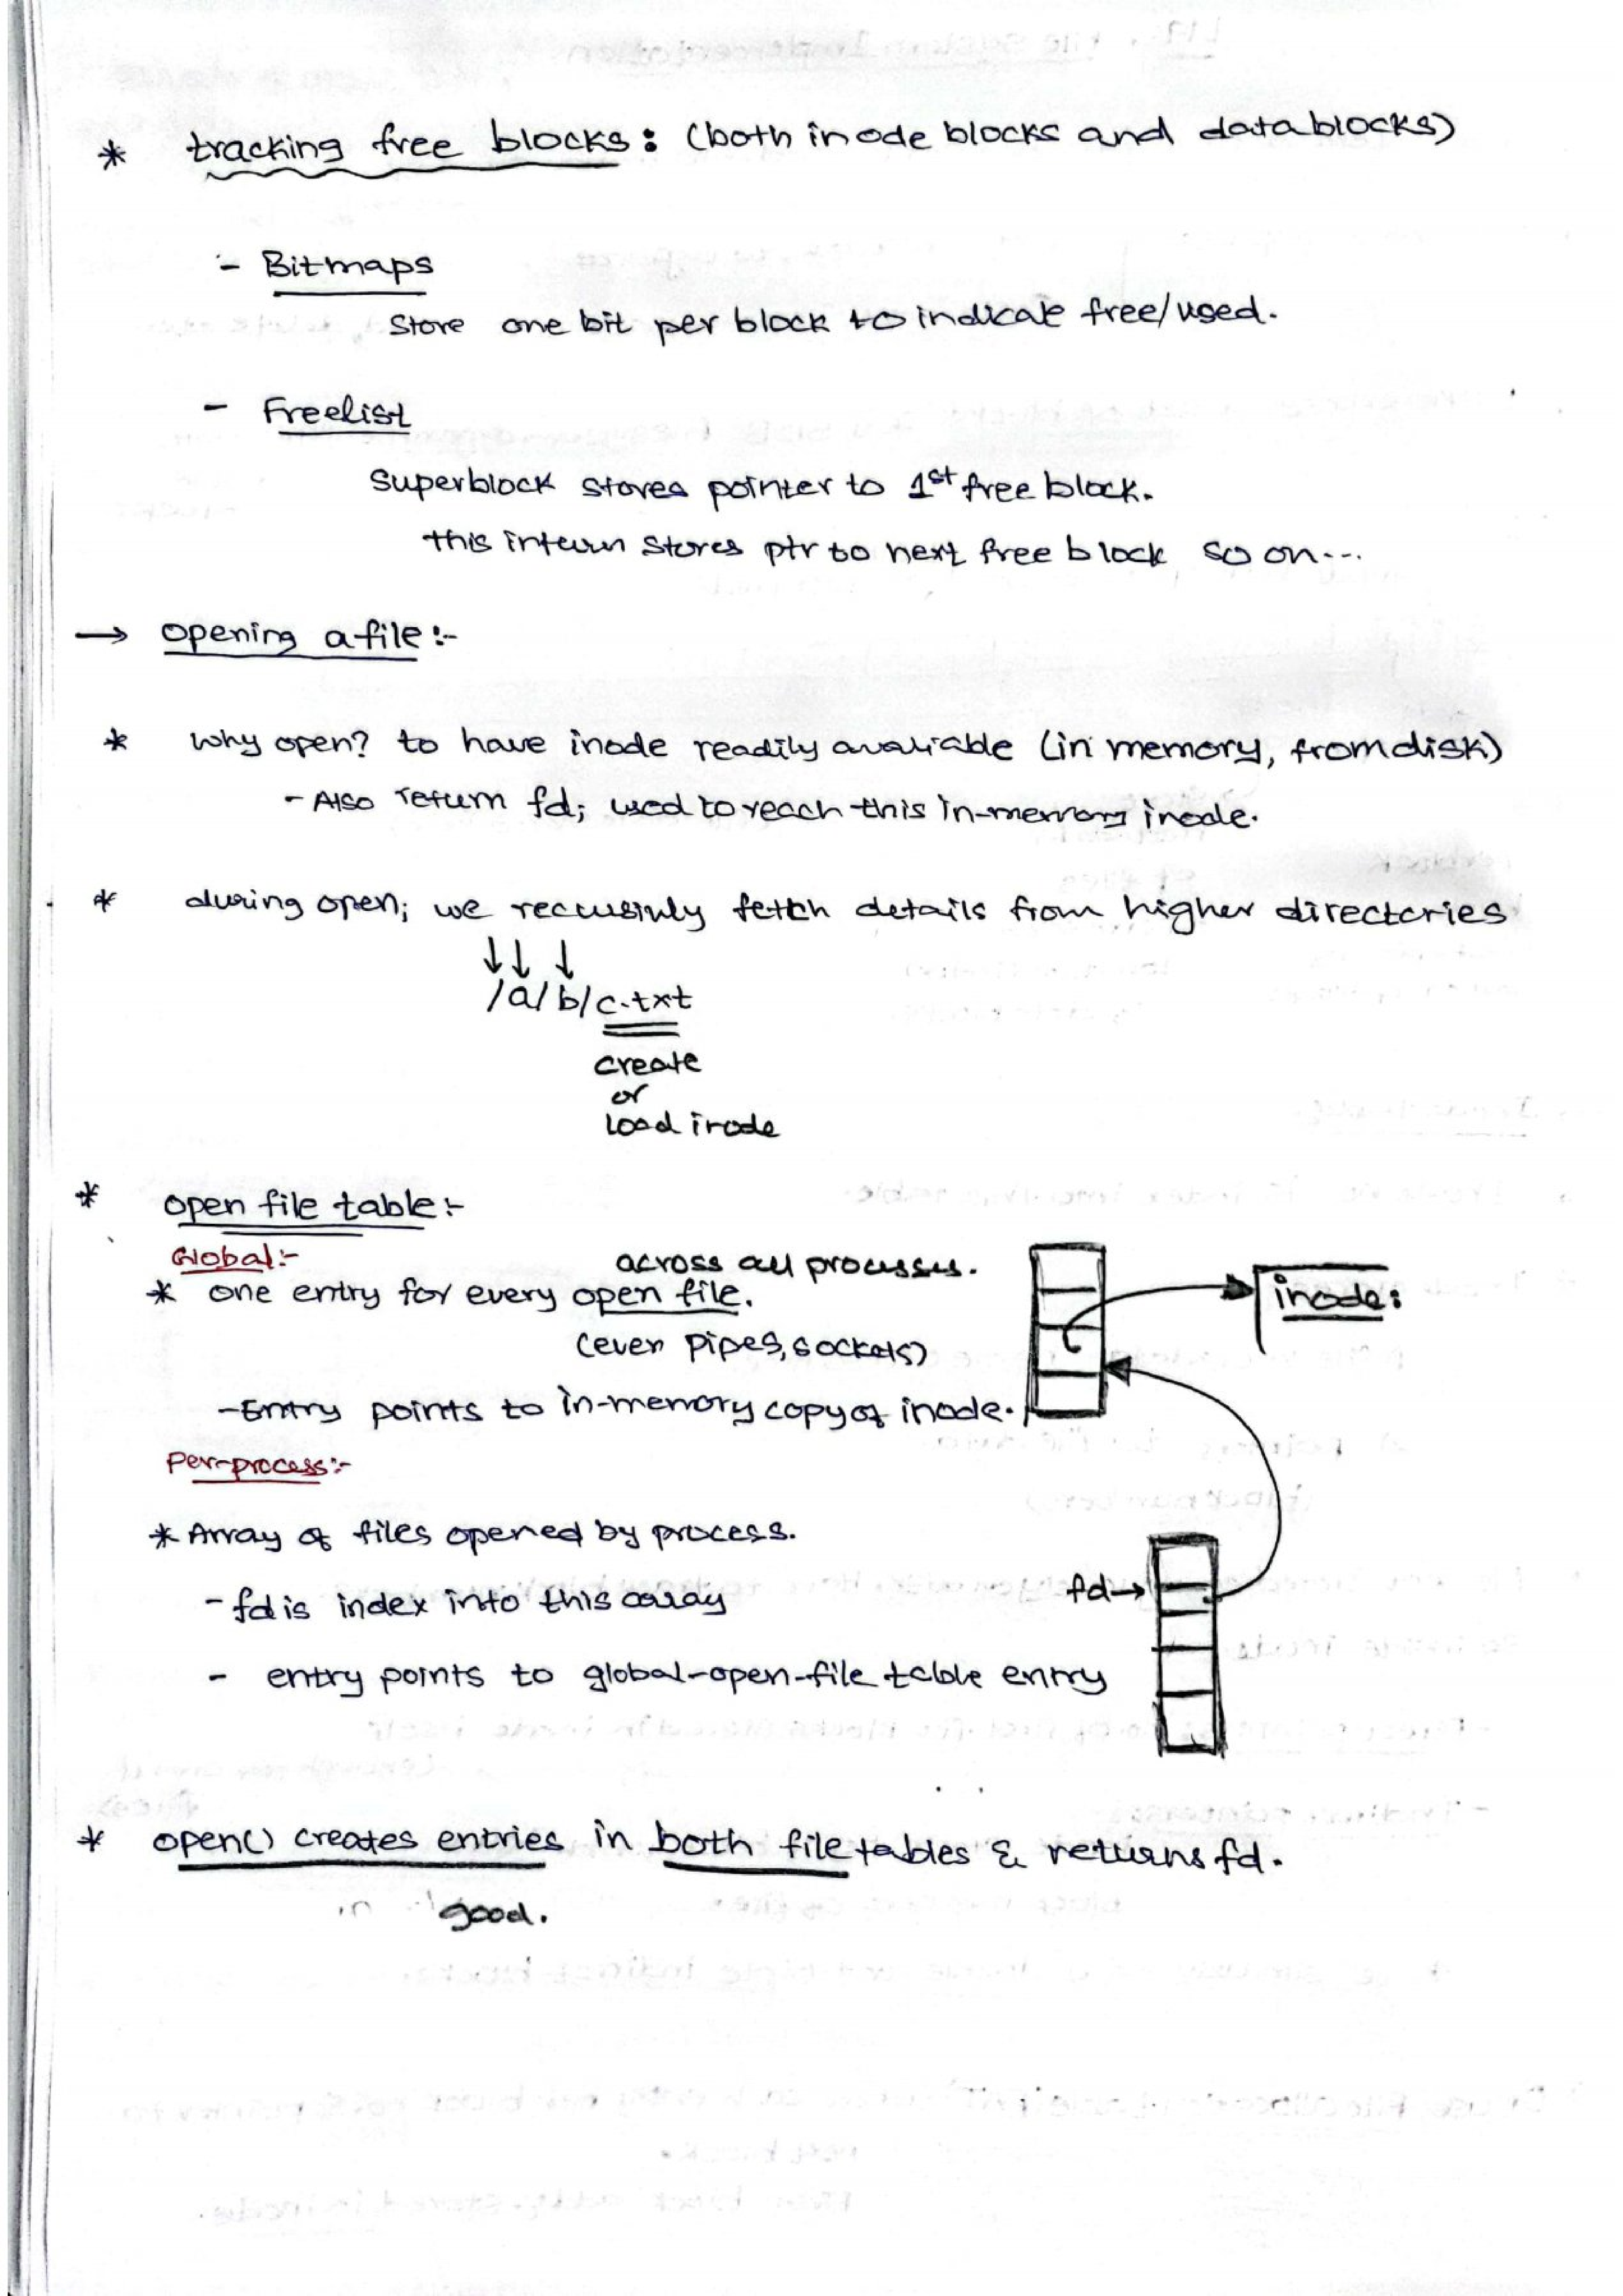 * tracking free blocks: (both inode blocks and datablocks)
- Bitmaps
Store one bit per block to indicate free/used.
- Freelist
Superblock stores pointer to 1st free block.
this inturn stores ptr to next free block so on...
→ opening a file:-
* why open? to have inode readily avaliable (in memory, from disk)
- Also return fd; used to reach this in-memory inode.
* during open; we reccusinly fetch details from higher directories
↓↓ ↓
/a/b/c.txt
create
or
load inode
* open file table:-
Global:-
across all processes.
* one entry for every open file.
(even pipes, sockets)
inode:
- Entry points to in-memory copy of inode.
Per-process:-
* Array of files opened by process.
fd→
- fd is index into this array
- entry points to global-open-file table entry
* open() creates entries in both file tables & returns fd.
good.